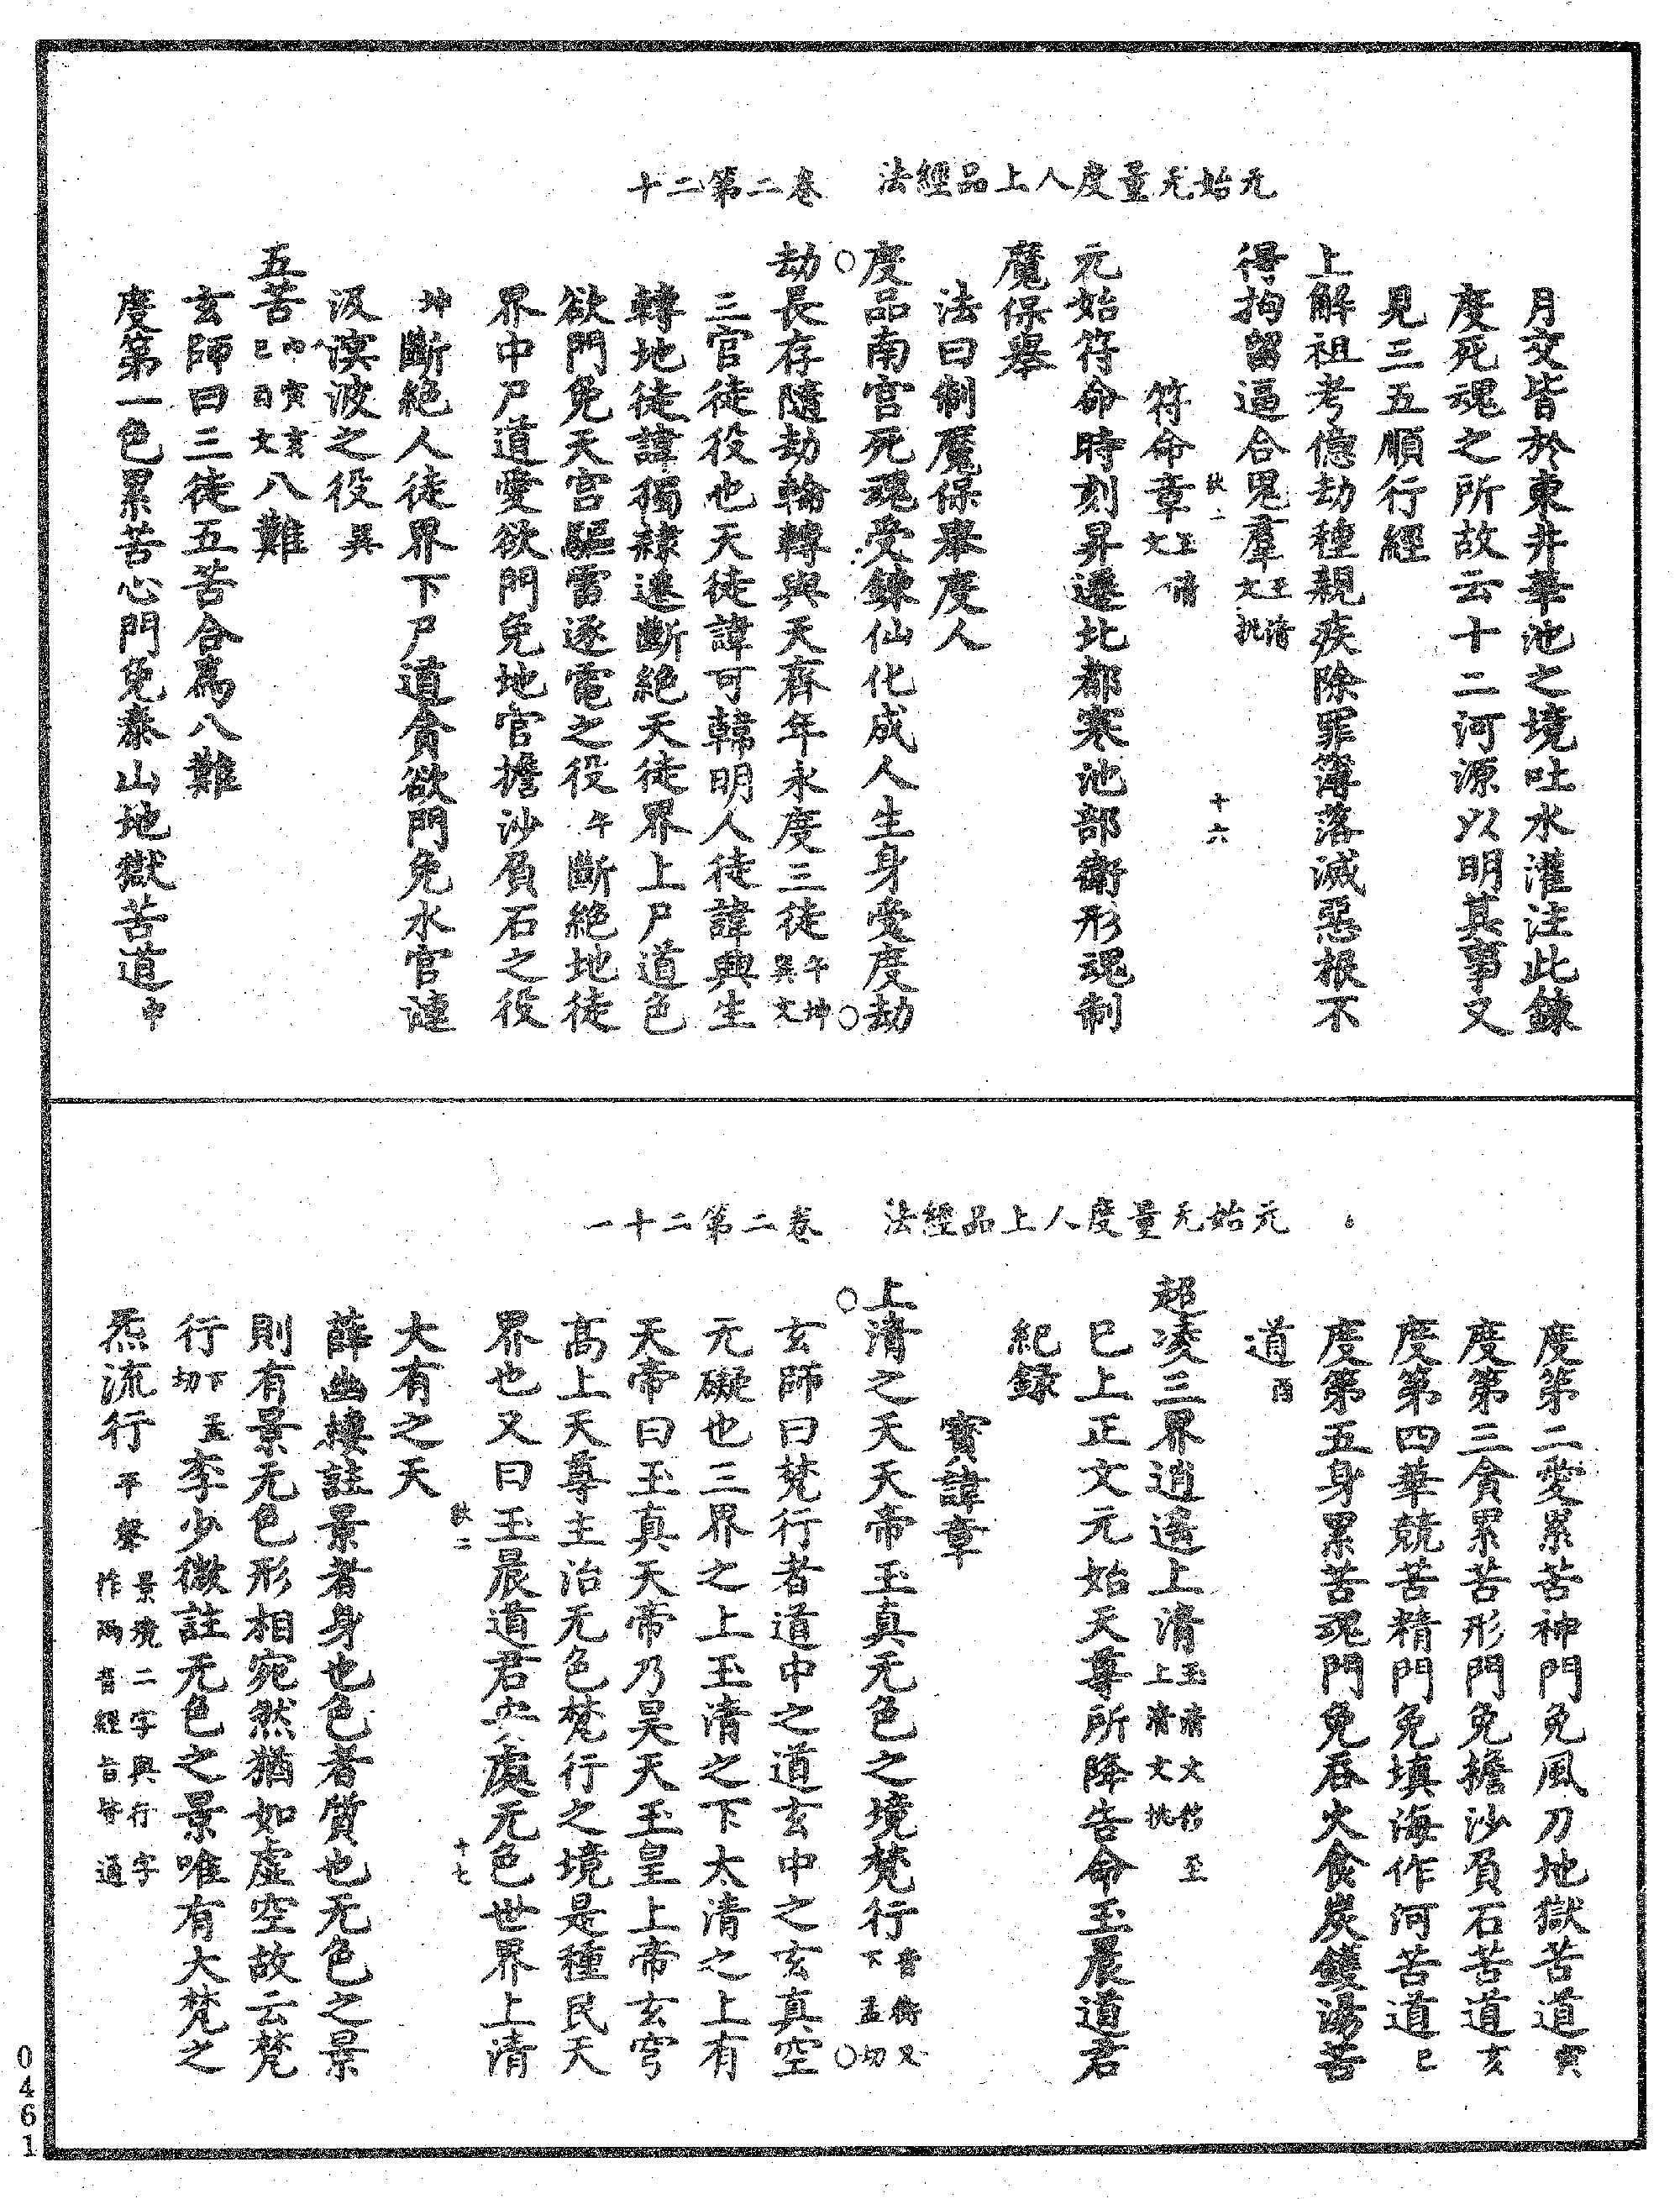 元始无量度人上品經法　卷二第二十
月交皆於東井華池之境吐水灌注此鍊
度死魂之所故云十二河源以明其事又
見三五順行經
上解祖考億劫種親疾除罪簿落滅惡根不
得拘留逼合鬼羣
玉清
文
二　十六
符命章
玉清
文
元始符命時刻昇遷北都寒池部衛形魂制
魔保舉
法曰制魔保舉度人
度品南宮死魂受鍊仙化成人生身受度劫
○　○
劫長存隨劫輪轉與天齊年永度三徒
午坤
巽文
三官徒役也天徒諱可韓明人徒諱興生
轉地徒諱獨隸逮斷絕天徒界上尸道色
欲門免天宮驅雷逐電之役午斷絕地徒
界中尸道愛欲門免地官擔沙負石之役
坤斷絕人徒界下尸道貪欲門免水官謰
汲溟波之役巽
五苦
申寅亥
巳酉文
八難
玄師曰三徒五苦合為八難
度第一色累苦心門免泰山地獄苦道申
元始无量度人上品經法　卷二第二十一
度第二愛累苦神門免風刀地獄苦道寅
度第三貪累苦形門免擔沙負石苦道亥
度第四華競苦精門免填海作河苦道巳
度第五身累苦魂門免吞火食炭鑊湯苦
道酉
超凌三界逍遙上清
玉清文
上清文
巳上正文元始天尊所降告命玉晨道君
紀録
寶諱章
上清之天天帝玉真无色之境梵行
音衡又
下孟切
○　○
玄師曰梵行者道中之道玄中之玄真空
无礙也三界之上玉清之下太清之上有
天帝曰玉真天帝乃昊天玉皇上帝玄穹
高上天尊主治无色梵行之境是種民天
界也又曰玉晨道君安處无色世界上清
二　十七
大有之天
薛幽棲註景者身也色者質也无色之景
則有景无色形相宛然猶如虛空故云梵
行
下孟
切
李少微註无色之景唯有大梵之
炁流行
平聲
景境二字與行字
作兩音經旨皆通
0461